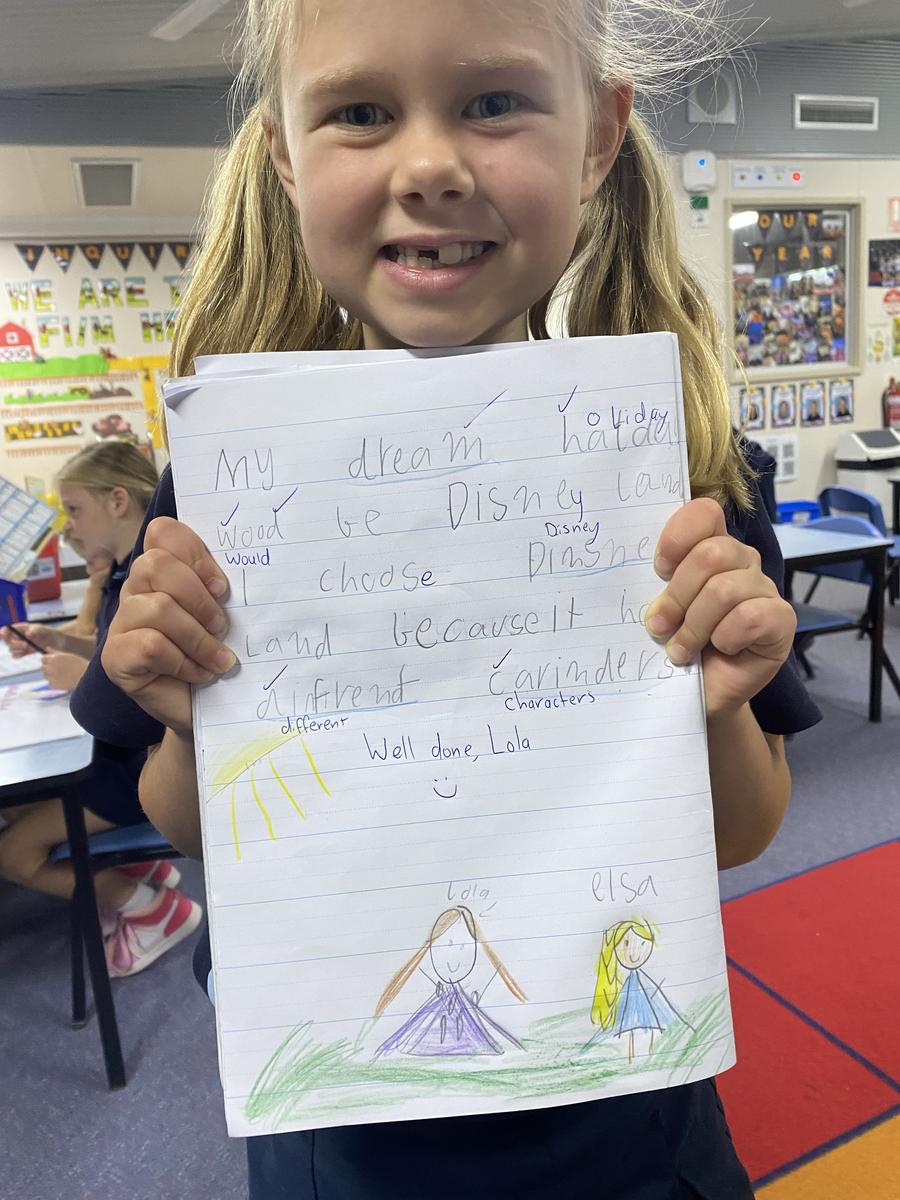 INQUIR
WE ARE
OUR
YEAR
oliday
My dream
wood be Disney Land
Would
Disney
I choose Dinsne
Land because it ha
dinfrent carinders.
different
Characters
Well done, Lola
Lola
elsa